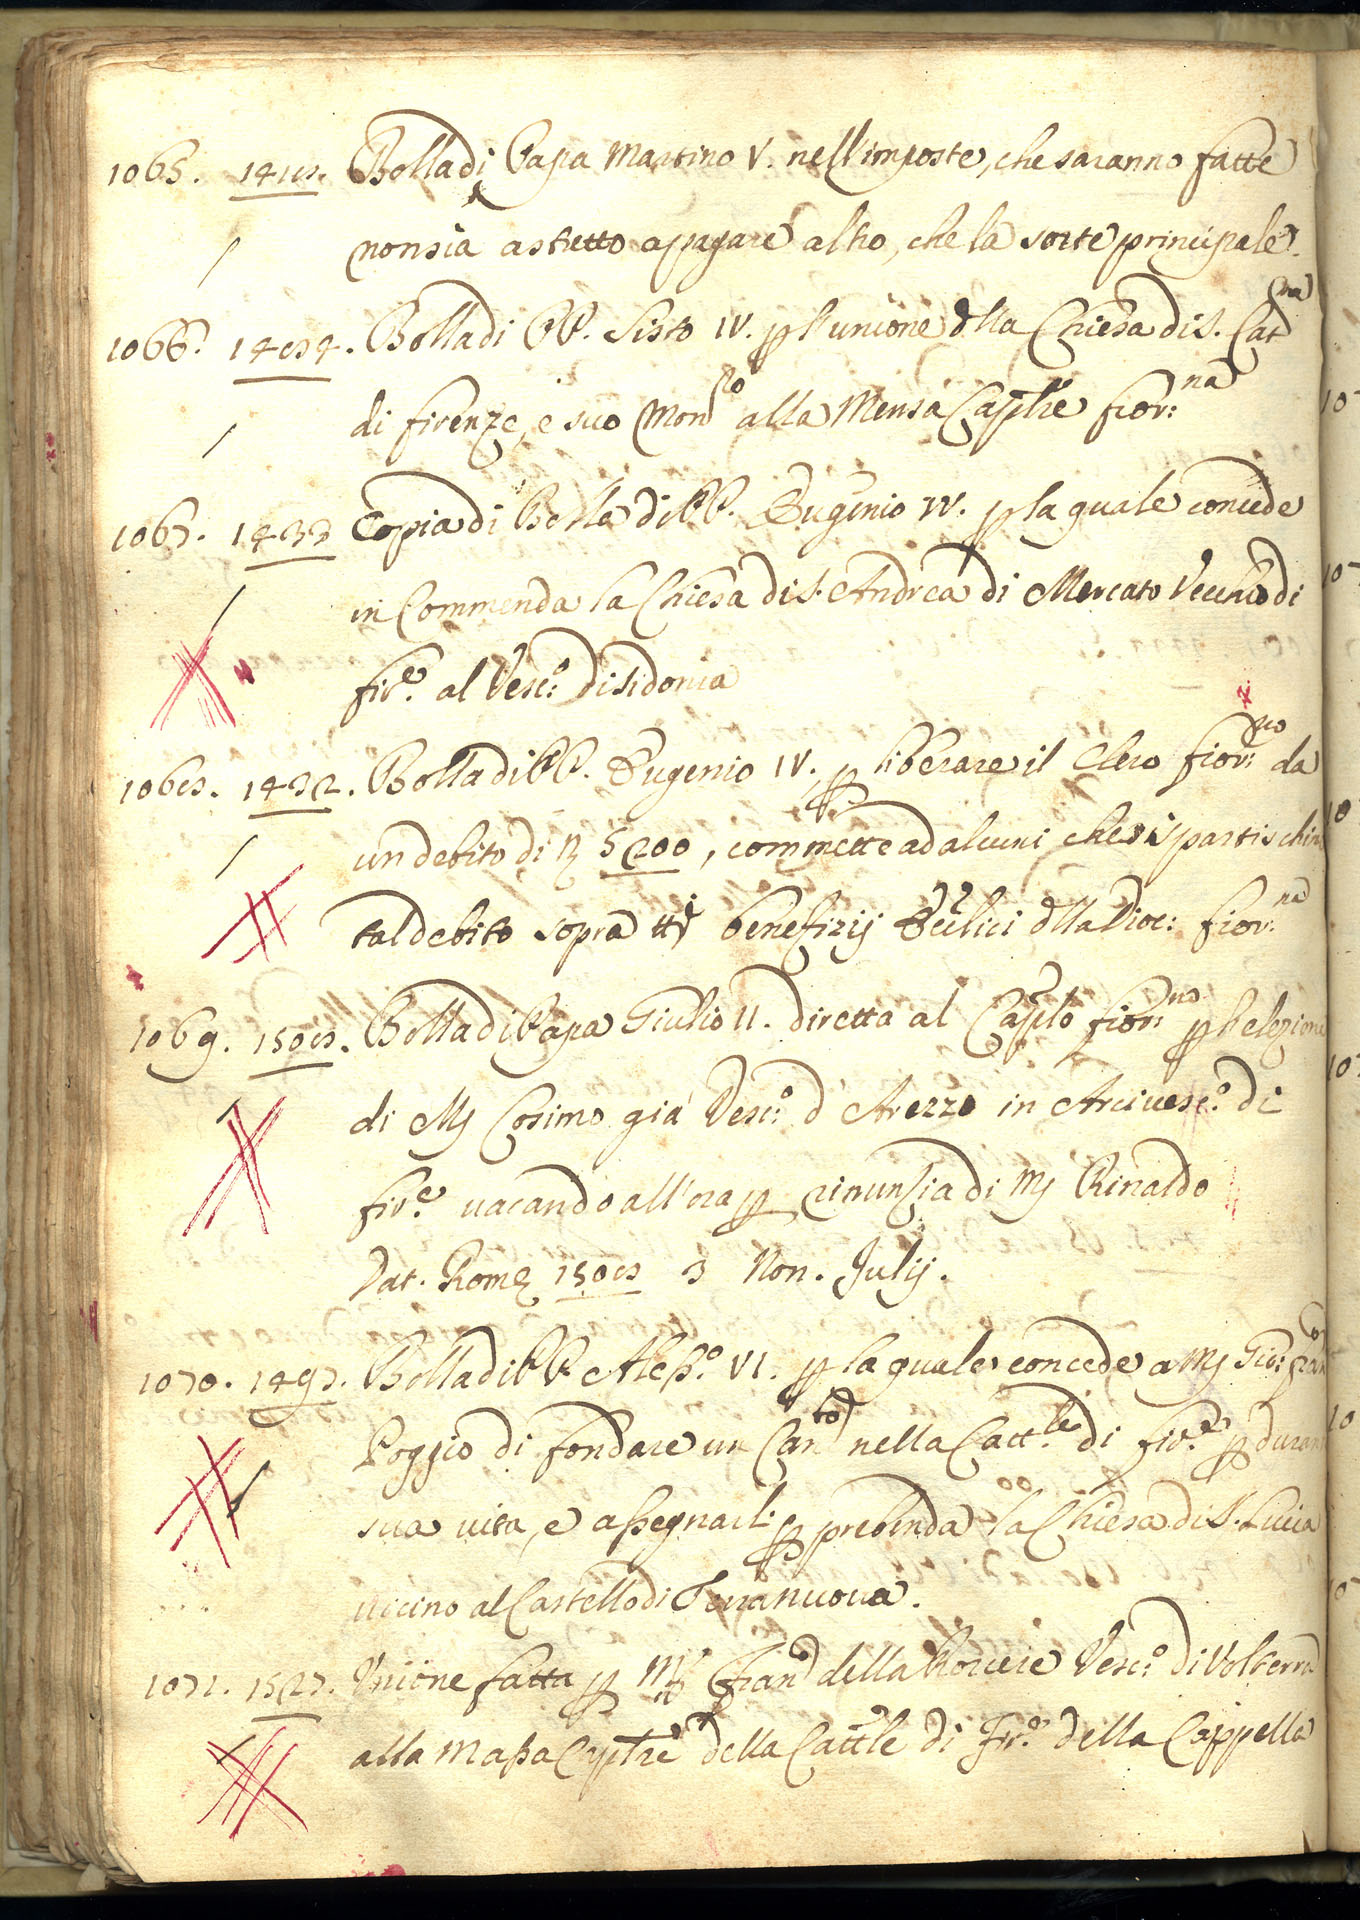 1065. 1418. Bolla di Papa Martino V. nell'imposte, che saranno fatte
non sia astretto a pagare altro, che la sorte principale.
1066. 1484. Bolla di PP. Sisto IV. p l'unione dlla Chiesa di S. Catna
di firenze, e suo Monro alla Mensa Caplre fior:na
1067. 1433 Copia di Bolla di PP. Eugenio IV. p la quale concede
in Commenda la Chiesa di S. Andrea di Mercato Vecchio di
fire. al Vesc:o di Sidonia
1068. 1432. Bolla di PP. Eugenio IV. p liberare il Clero fior:no da
un debito di 5200, commette ad alcuni che rispartischin
tal debito sopra tti benefizij Ecclici dlla Dioc: fior:na
1069. 1508. Bolla di Papa Giulio II. diretta al Caplo fior:no p l'elezione
di Mr Cosimo già Vesc:o d'Arezzo in Arcivesc:o di
fire. vacando all'ora p rinunzia di Mr Rinaldo
Dat. Rome 1508 3 Non. Julij.
1070. 1497. Bolla di PP Aless.o VI. p la quale concede a Mr Gio: Franco
Poggio di fondare un Canto nella Catt.le di fire. p durante
sua vita, e assegnarli p prebenda la Chiesa di S. Lucia
vicino al Castello di Terranuova.
1071. 1527. Unione fatta p Mr Franco della Rovere Vesc:o di Volterra
alla Massa Caplre della Cattle di Fire. della Cappella
10
10
10
10
10
10